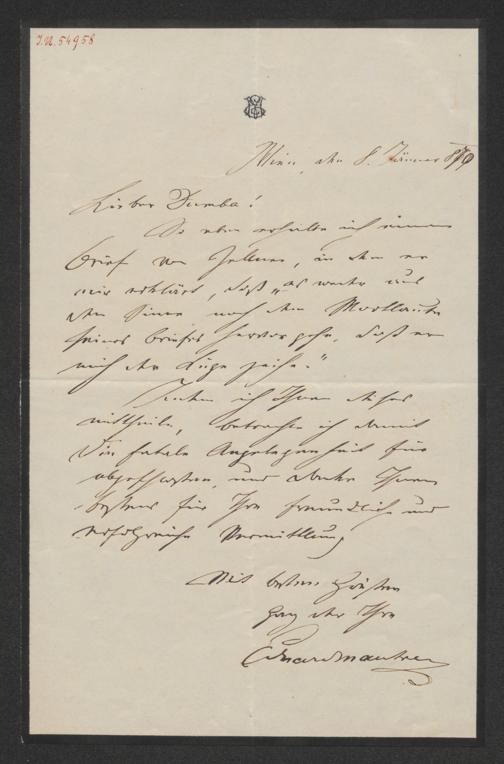 I.N. 54958
Wien, den 8. Jänner 879
Lieber Dumba!
So eben erhalte ich einen
Brief von Zellner, in dem er
mir erklärt, daß „es weder aus
dem Sinne noch dem Wortlaute
seines Briefes hervorgehe, daß er
mich der Lüge zeihe."
Indem ich Ihnen dieses
mittheile, betrachte ich damit
die fatale Angelegenheit für
abgeschlossen, und danke Ihnen
bestens für Ihre freundliche und
erfolgreiche Vermittlung
Mit besten Grüßen
ganz der Ihre
Eduard Mautner